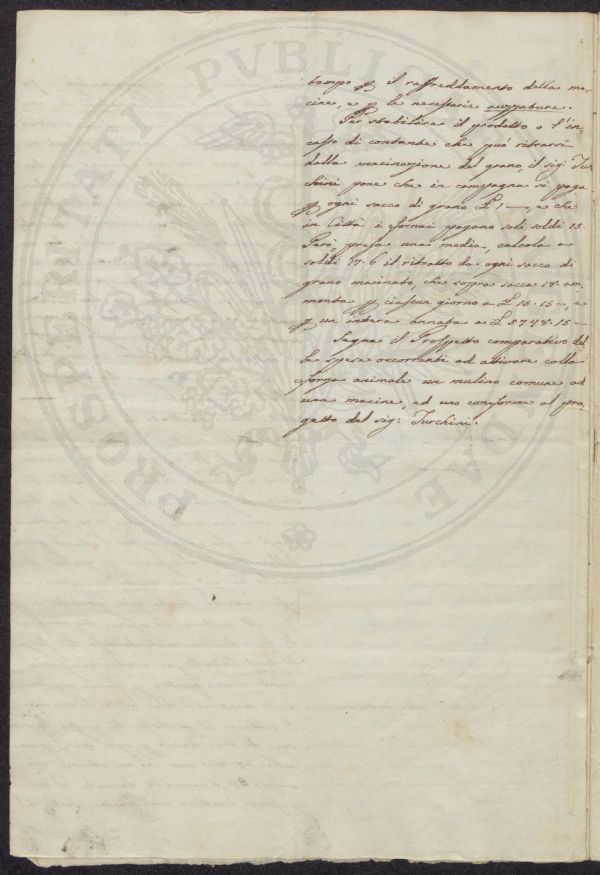 PROSPERITATI PUBLICAE
tempo p il raffreddamento della ma-
cine, e p le necessarie auzzature.
Per stabilire il prodotto o l'in-
casso di contante che può ritrarsi
dalla macinazione del grano, il sig: Tur
chini pone che in campagna si paga
p ogni sacco di grano £ 1 —, e che
in Città i fornai pagano soli soldi 15.
Però, presa una media, calcola a
soldi 17.6 il ritratto da ogni sacco di
grano macinato, che sopra sacca 18 am
monta p ciascun giorno a £ 15.15 —, e
p un intera annata a £ 5748.15 —
Segue il Prospetto comparativo del
le spese occorrenti ad attivare colla
forza asinale un mulino comune ad
una macine, ed uno conforme al pro
getto del sig: Turchini.